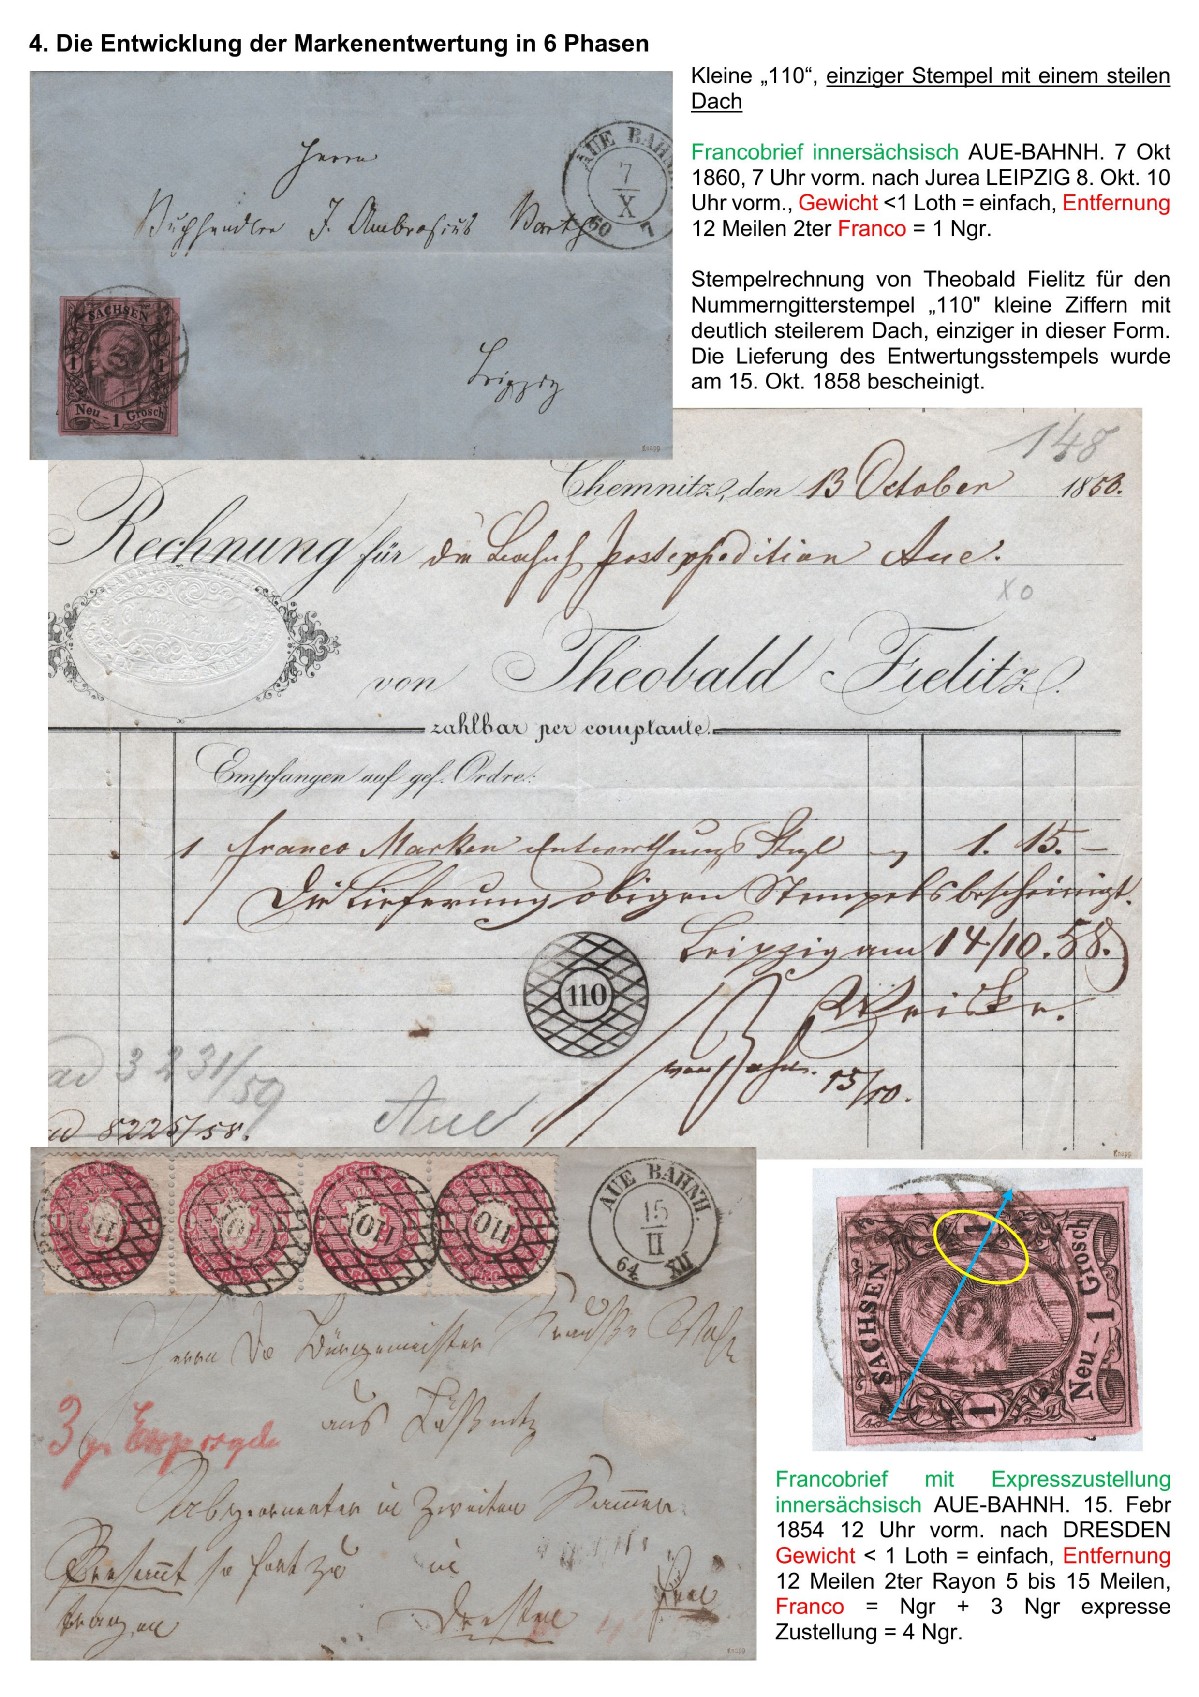 4. Die Entwicklung der Markenentwertung in 6 Phasen
Kleine „110“, einziger Stempel mit einem steilen
Dach
Francobrief innersächsisch AUE-BAHNH. 7 Okt
1860, 7 Uhr vorm. nach Jurea LEIPZIG 8. Okt. 10
Uhr vorm., Gewicht <1 Loth = einfach, Entfernung
12 Meilen 2ter Franco = 1 Ngr.
Stempelrechnung von Theobald Fielitz für den
Nummerngitterstempel „110" kleine Ziffern mit
deutlich steilerem Dach, einziger in dieser Form.
Die Lieferung des Entwertungsstempels wurde
am 15. Okt. 1858 bescheinigt.
Herrn
Buchhändler J. Ambrosius Barth
Leipzig
AUE BAHNH.
7
X
60
SACHSEN
1 1
Neu - 1 Grosch
Knapp
148
Chemnitz, den 13 October 1858.
Rechnung für die Postexpedition Aue.
XO
von Theobald Fielitz.
zahlbar per comptante.
Empfangen auf gef. Ordre:
1 franco Marken Entwerthungs 1. 15. —
Die Lieferung obigen Stempels bescheinigt.
Leipzig am 14/10. 58.
110
15/10.
ad 3231/59
Aue
ad 8225/58.
Knapp
110
110
110
110
AUE BAHNH.
15
II
64 XII
Herrn Bürgermeister
aus Lößnitz
3 gr
Abgeordneter in Zweiten Kammer
in
Dresden
Knapp
SACHSEN
1 1
Neu - 1 Grosch
Francobrief mit Expresszustellung
innersächsisch AUE-BAHNH. 15. Febr
1854 12 Uhr vorm. nach DRESDEN
Gewicht < 1 Loth = einfach, Entfernung
12 Meilen 2ter Rayon 5 bis 15 Meilen,
Franco = Ngr + 3 Ngr expresse
Zustellung = 4 Ngr.